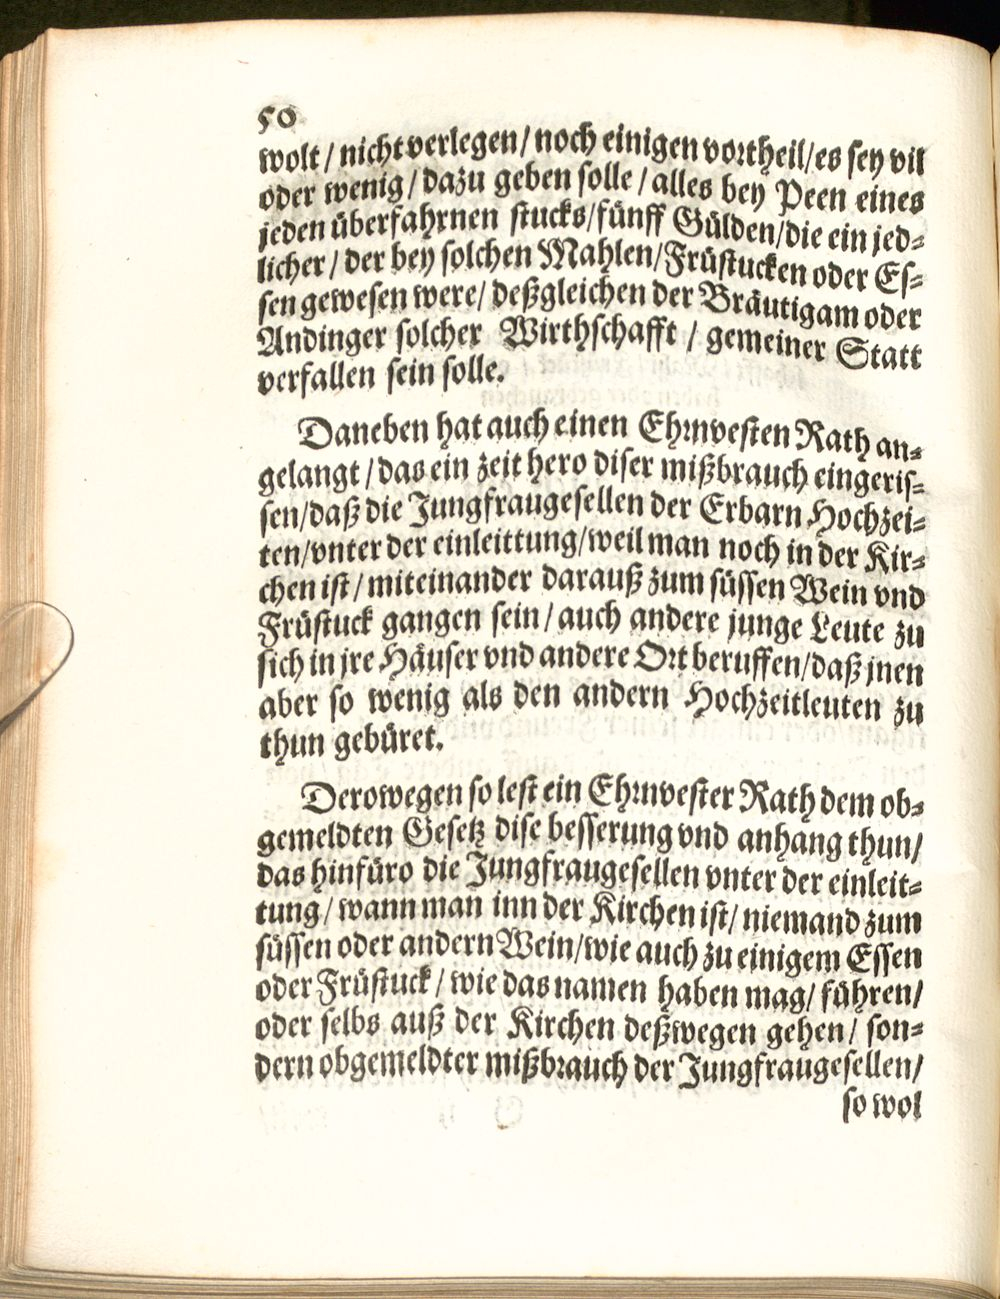 50
wolt / nicht verlegen / noch einigen vortheil / es sey vil
oder wenig / dazu geben solle / alles bey Peen eines
jeden überfahrnen stucks / fünff Gülden / die ein jed-
licher / der bey solchen Mahlen / Früstucken oder Es-
sen gewesen were / deßgleichen der Bräutigam oder
Andinger solcher Wirthschafft / gemeiner Statt
verfallen sein solle.
Daneben hat auch einen Ehrnvesten Rath an-
gelangt / das ein zeit hero diser mißbrauch eingeris-
sen / daß die Jungfraugesellen der Erbarn Hochzei-
ten / vnter der einleittung / weil man noch in der Kir-
chen ist / miteinander darauß zum süssen Wein vnd
Früstuck gangen sein / auch andere junge Leute zu
sich in jre Häuser vnd andere Ort beruffen / daß jnen
aber so wenig als den andern Hochzeitleuten zu
thun gebüret.
Derowegen so lest ein Ehrnvester Rath dem ob-
gemeldten Gesetz dise besserung vnd anhang thun /
das hinfüro die Jungfraugesellen vnter der einleit-
tung / wann man inn der Kirchen ist / niemand zum
süssen oder andern Wein / wie auch zu einigem Essen
oder Früstuck / wie das namen haben mag / führen /
oder selbs auß der Kirchen deßwegen gehen / son-
dern obgemeldter mißbrauch der Jungfraugesellen /
so wol